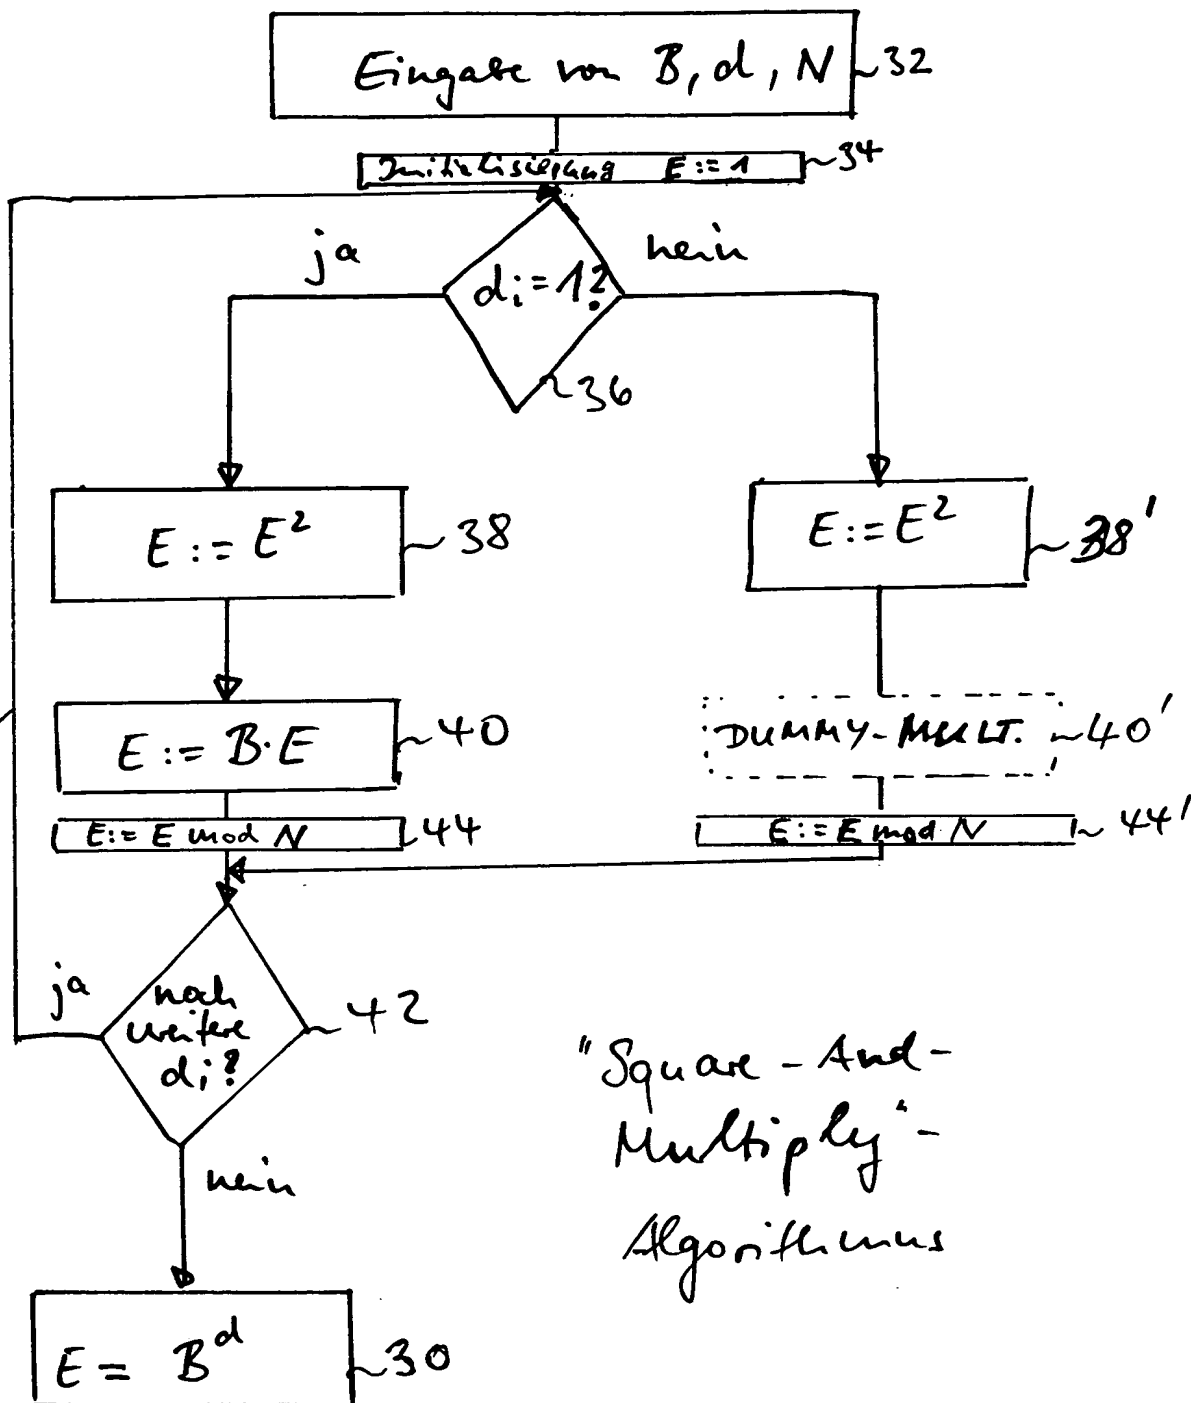 Eingabe von B, d, N 32
Initialisierung E := 1 34
ja
nein
di = 1?
36
E := E² 38
E := E² 38'
E := B·E 40
DUMMY-MULT. 40'
E := E mod N 44
E := E mod N 44'
ja
noch
weitere
di?
42
nein
"Square-And-
Multiply"-
Algorithmus
E = B^d 30